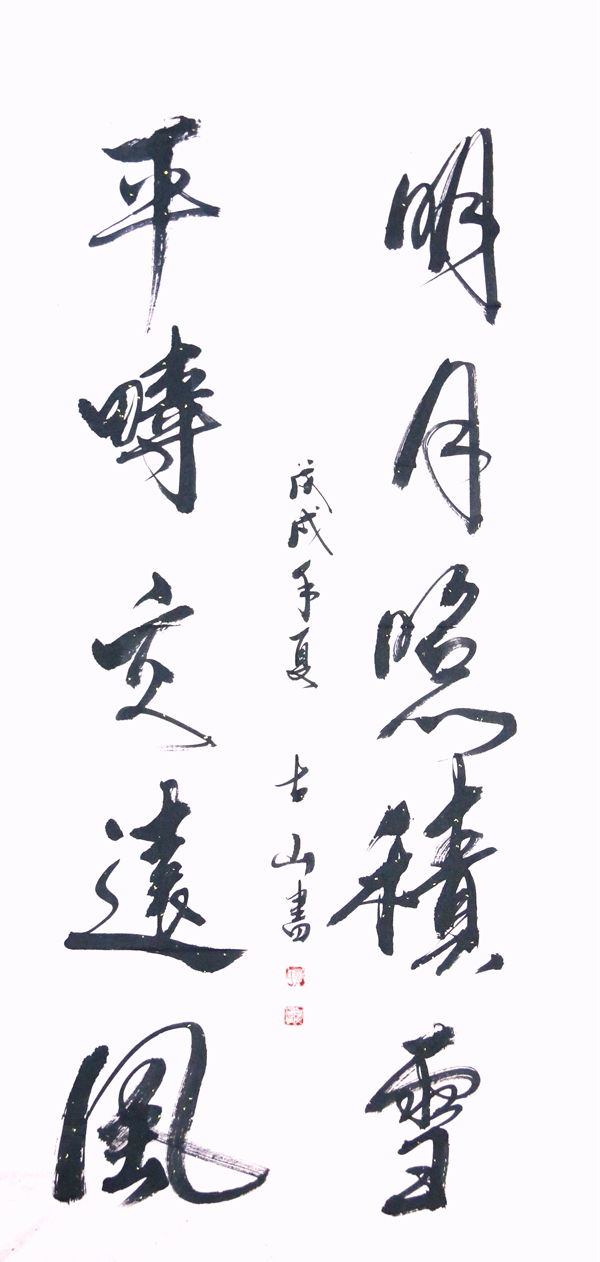 明月照積雪
平疇交遠風
戊戌年夏 古山書